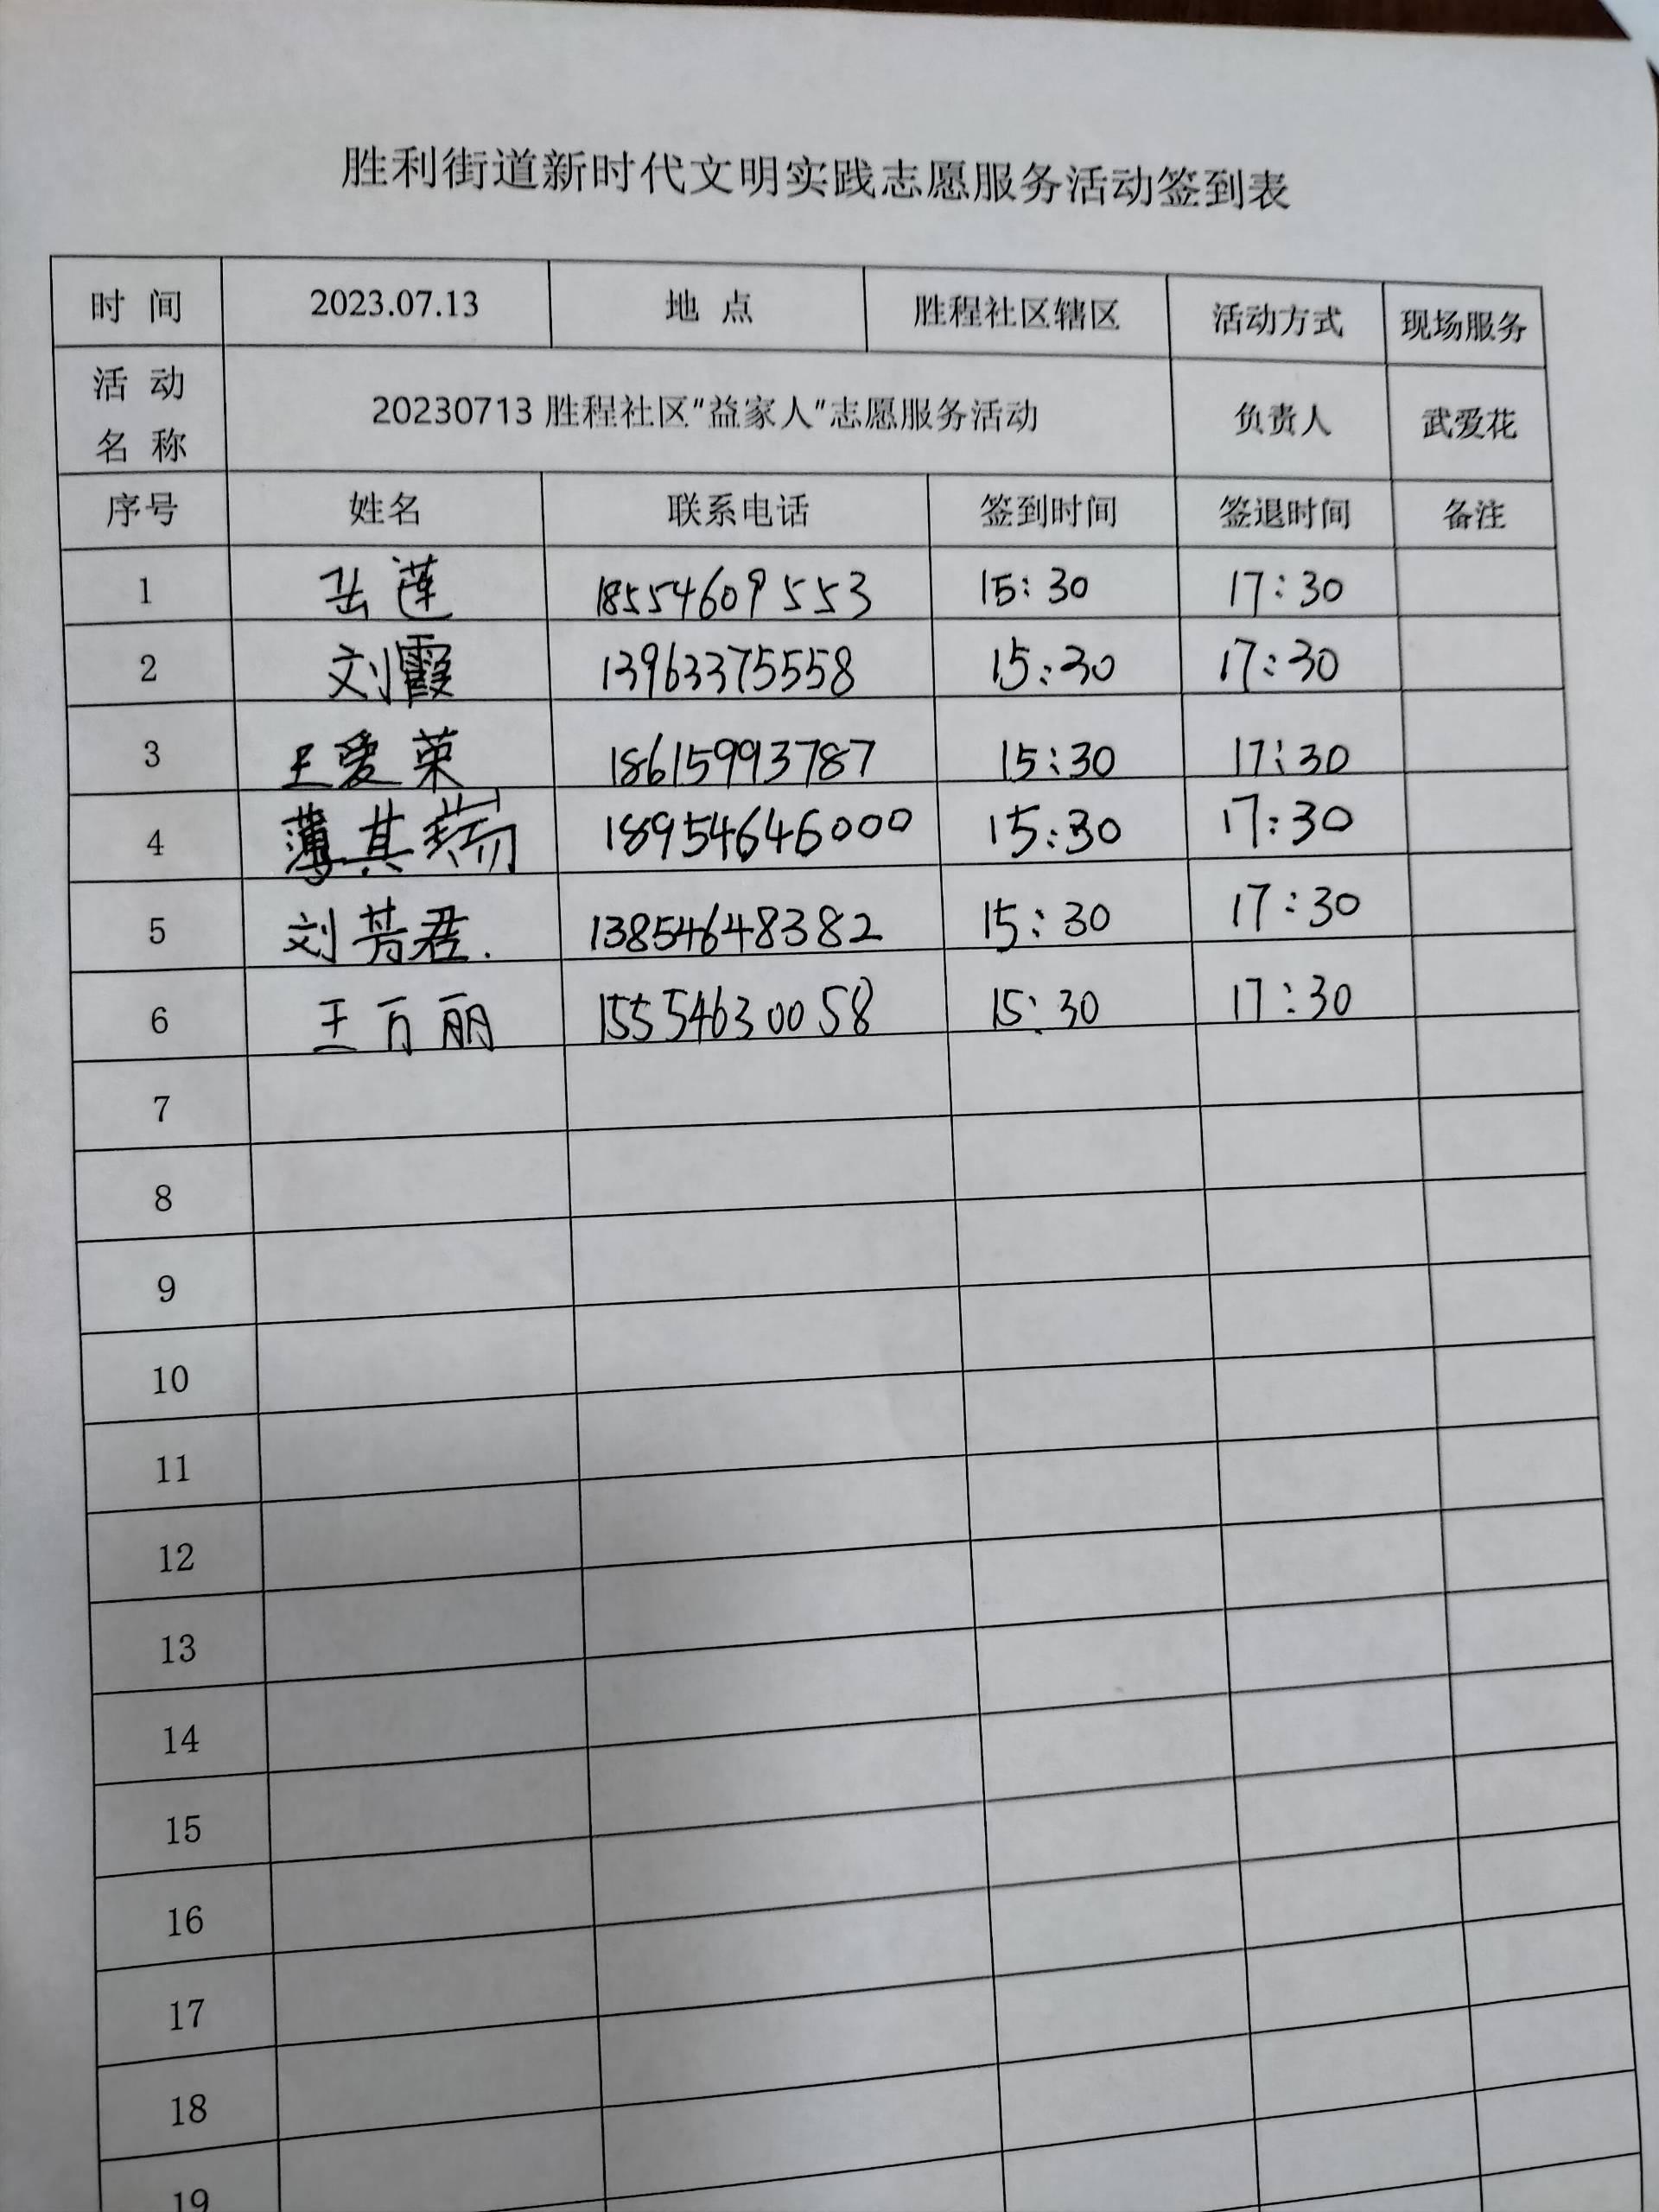 胜利街道新时代文明实践志愿服务活动签到表
时 间 2023.07.13 地 点 胜程社区辖区 活动方式 现场服务
活 动
名 称 20230713胜程社区“益家人”志愿服务活动 负责人 武爱花
序号 姓名 联系电话 签到时间 签退时间 备注
1 岳莲 18554609553 15:30 17:30
2 刘霞 13963375558 15:30 17:30
3 王爱荣 18615993787 15:30 17:30
4 薄其瑞 18954646000 15:30 17:30
5 刘芳君. 13854648382 15:30 17:30
6 王万丽 15554630058 15:30 17:30
7
8
9
10
11
12
13
14
15
16
17
18
19